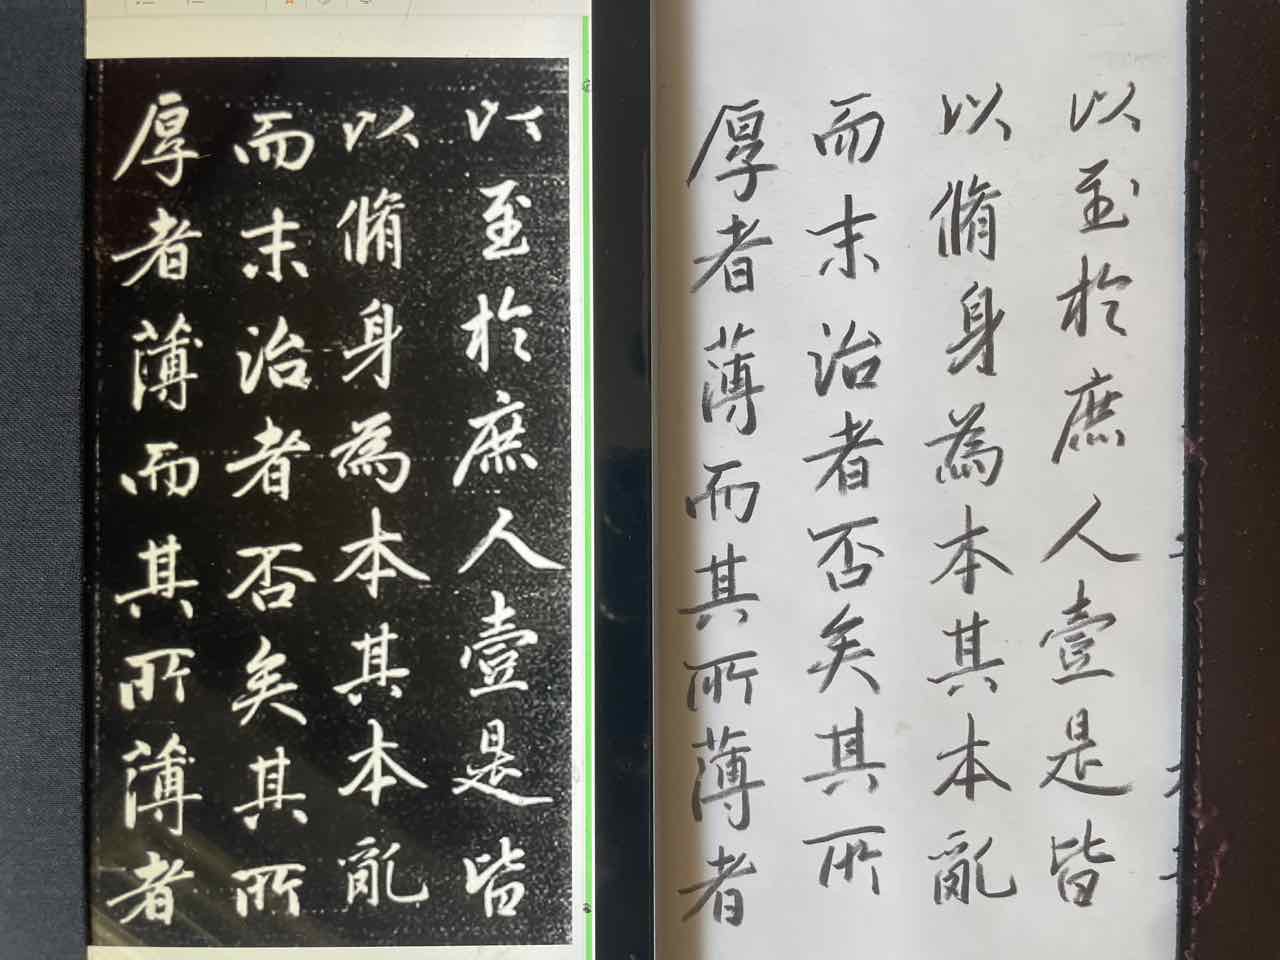 以至於庶人壹是皆
以脩身為本其本亂
而末治者否矣其所
厚者薄而其所薄者
以至於庶人壹是皆
以脩身為本其本亂
而末治者否矣其所
厚者薄而其所薄者